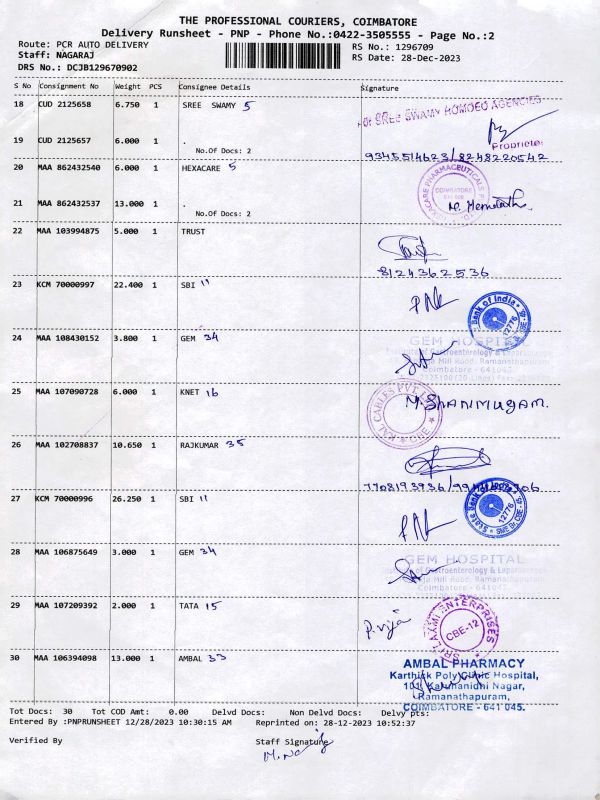 THE PROFESSIONAL COURIERS, COIMBATORE
Delivery Runsheet - PNP - Phone No.:0422-3505555 - Page No.:2
Route: PCR AUTO DELIVERY
RS No.: 1296709
Staff: NAGARAJ
RS Date: 28-Dec-2023
DRS No.: DCJB129670902
S No Consignment No Weight PCS Consignee Details Signature
18 CUD 2125658 6.750 1 SREE SWAMY 5
For SREE SWAMY HOMOEO AGENCIES
19 CUD 2125657 6.000 1 .
Proprietor
No.Of Docs: 2
9345514623/8248220542
20 MAA 862432540 6.000 1 HEXACARE 5
HEXACARE PHARMACEUTICALS
COIMBATORE
21 MAA 862432537 13.000 1 .
No.Of Docs: 2
22 MAA 103994875 5.000 1 TRUST
8124362536
23 KCM 70000997 22.400 1 SBI 11
Bank of India
12776
24 MAA 108430152 3.800 1 GEM 34
GEM HOSPITAL
Gastroenterology &
Mill Road, Ramanathapuram
Coimbatore - 641045
25 MAA 107090728 6.000 1 KNET 16
CABLES PVT
CBE
M. SHANMUGAM.
26 MAA 102708837 10.650 1 RAJKUMAR 35
7708193936/
27 KCM 70000996 26.250 1 SBI 11
State Bank of India
12776
28 MAA 106875649 3.000 1 GEM 34
GEM HOSPITAL
Gastroenterology &
Mill Road, Ramanathapuram
Coimbatore - 641045
29 MAA 107209392 2.000 1 TATA 15
P. Vija
SRI LAXMI ENTERPRISES
CBE-12
30 MAA 106394098 13.000 1 AMBAL 33
AMBAL PHARMACY
Karthick Poly Clinic Hospital,
101, Karunanidhi Nagar,
Ramanathapuram,
COIMBATORE - 641 045.
Tot Docs: 30 Tot COD Amt: 0.00 Delvd Docs: Non Delvd Docs: Delvy pts:
Entered By :PNPRUNSHEET 12/28/2023 10:30:15 AM Reprinted on: 28-12-2023 10:52:37
Verified By Staff Signature